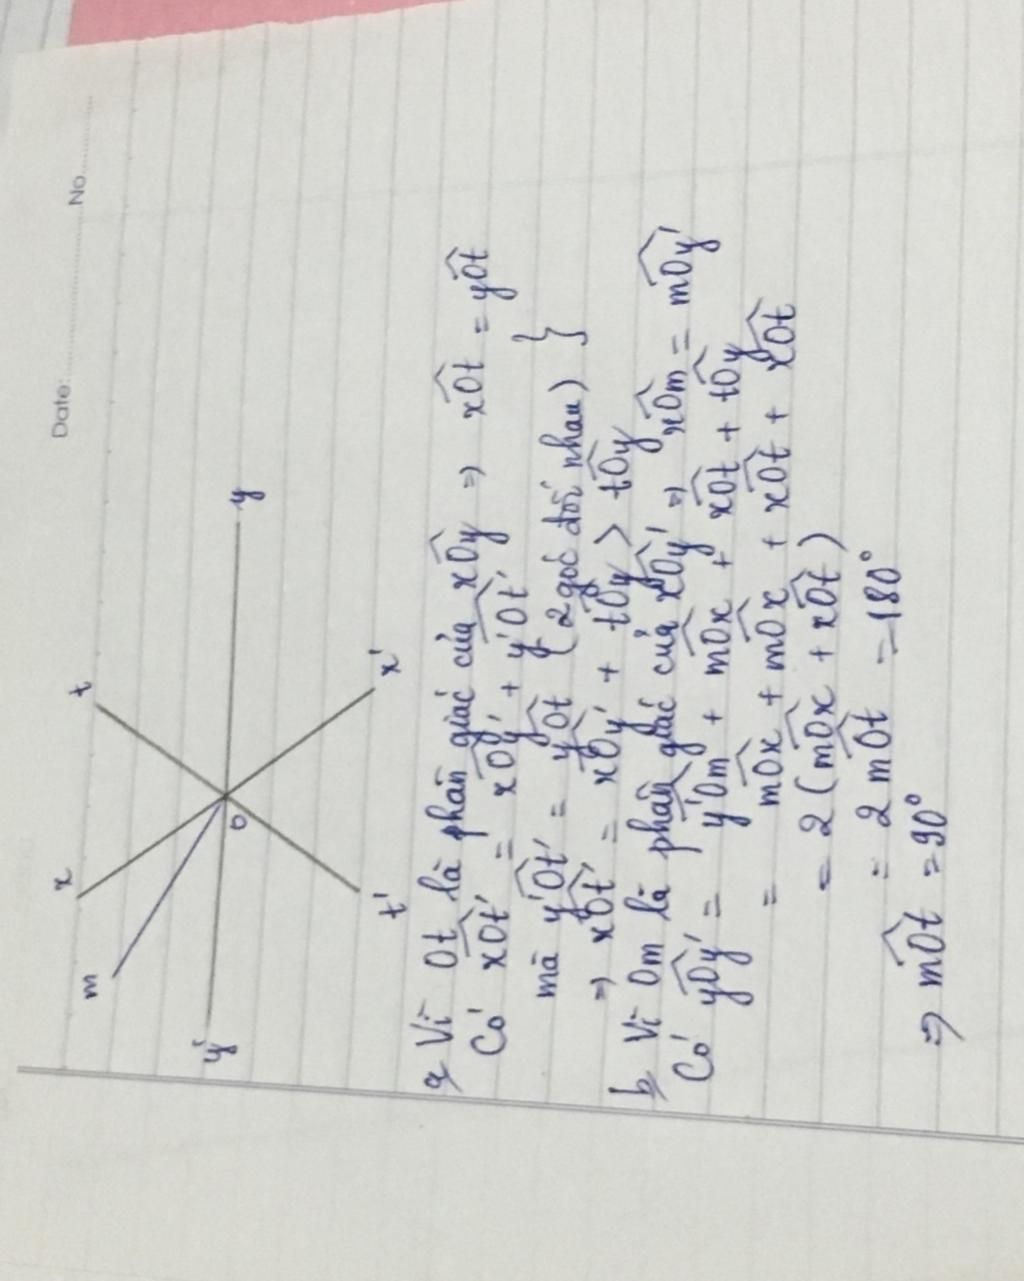 Date: No.
x
t
m
y'
O
y
t'
x'
a, Vì Ot là phân giác của xÔy => xÔt = yÔt
Có xÔt' = xÔy' + y'Ôt' }
mà y'Ôt' = yÔt (2 góc đối nhau) }
=> xÔt' = xÔy' + tÔy > tÔy
b, Vì Om là phân giác của xÔy' => xÔm = mÔy'
Có yÔy' = y'Ôm + mÔx + xÔt + tÔy
= mÔx + mÔx + xÔt + xÔt
= 2 (mÔx + xÔt)
= 2 mÔt = 180°
=> mÔt = 90°